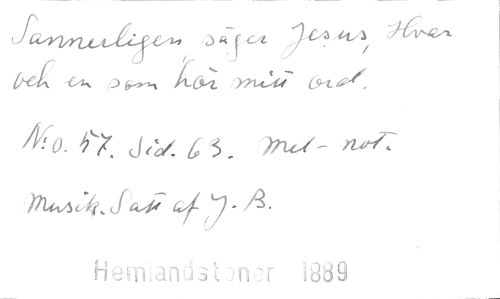 Sannerligen, säger Jesus, Hvar
och en som hör mitt ord.
No. 57. Sid. 63. Mel-not.
Musik. Satt af J. B.
Hemlandstoner 1889